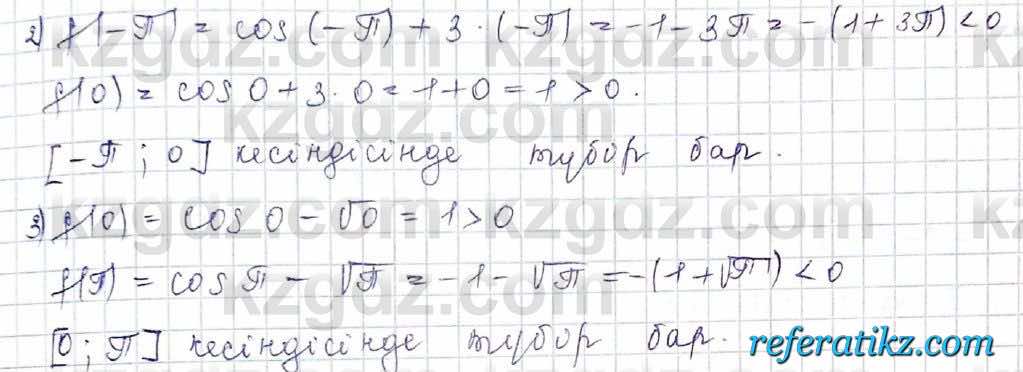 2) f(-π) = cos(-π) + 3·(-π) = -1 - 3π = -(1 + 3π) < 0
f(0) = cos 0 + 3·0 = 1 + 0 = 1 > 0.
[-π; 0] кесіндісінде түбір бар.
3) f(0) = cos 0 - √0 = 1 > 0
f(π) = cos π - √π = -1 - √π = -(1 + √π) < 0
[0; π] кесіндісінде түбір бар.
referatikz.com
kzgdz.com